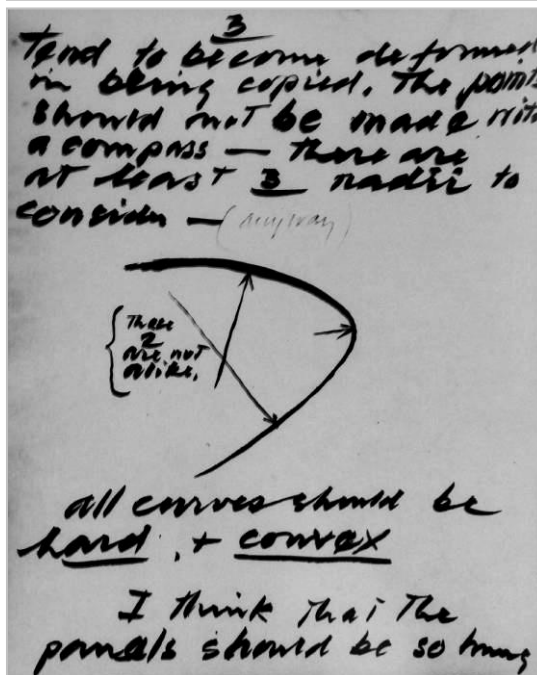 3
Tend to become deformed
in being copied. The points
should not be made with
a compass — there are
at least 3 radii to
consider — (anyway)
These
2
are not
alike.
all curves should be
hard, + convex
I think that the
panels should be so hung